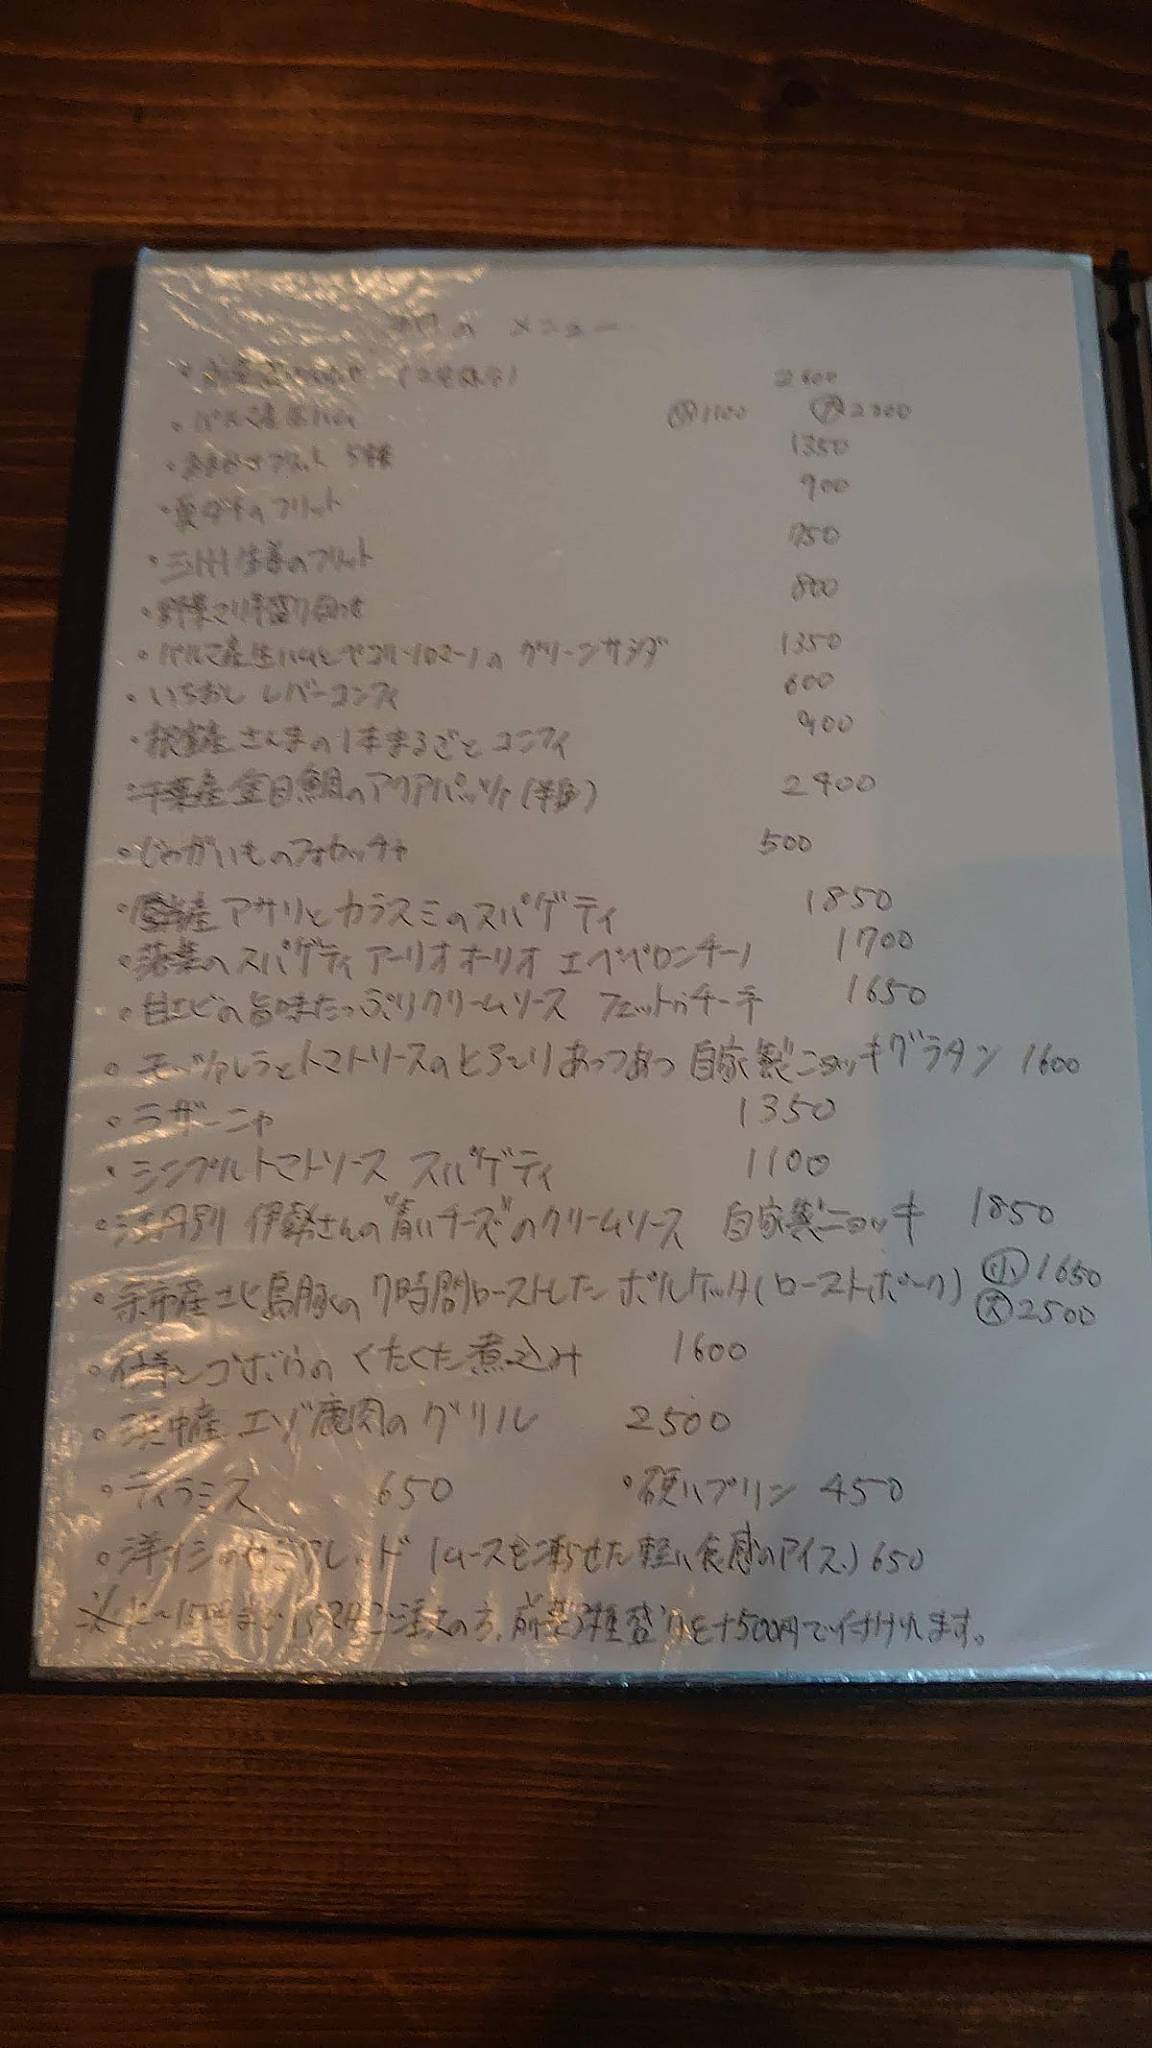 本日の メニュー
2600
・パルマ産生ハム ㋛1100 大2200
・おまかせフリット 5種 1350
・真ダチのフリット 900
・のフリット 750
・野菜 盛り合わせ 800
・パルマ産生ハムとペコリーノロマーノの グリーンサラダ 1350
・いちおし レバーコンフィ 600
・根室産さんまの1本まるごと コンフィ 900
・千葉産金目鯛のアクアパッツァ(半身) 2400
・じゃがいものフォカッチャ 500
・厚岸産アサリとカラスミのスパゲティ 1850
のスパゲティ アーリオオーリオ エ ペペロンチーノ 1700
・甘エビの旨味たっぷりクリームソース フェットゥチーネ 1650
・モッツァレラとトマトソースのとろ〜りあつあつ 自家製ニョッキグラタン 1600
・ラザーニャ 1350
・シンプルトマトソース スパゲティ 1100
・江丹別 伊勢さんの"青いチーズ"のクリームソース 自家製ニョッキ 1850
・余市産北島豚の7時間ローストした ポルケッタ(ローストポーク) 小1650
大2500
・仔羊とゴボウの くたくた煮込み 1600
・浜中産 エゾ鹿肉のグリル 2500
・ティラミス 650 ・硬いプリン 450
・洋ナシのセミフレッド (ムースを凍らせた軽い食感のアイス) 650
※12〜15時まで パスタご注文の方、前菜3種盛りを+500円で付けれます。